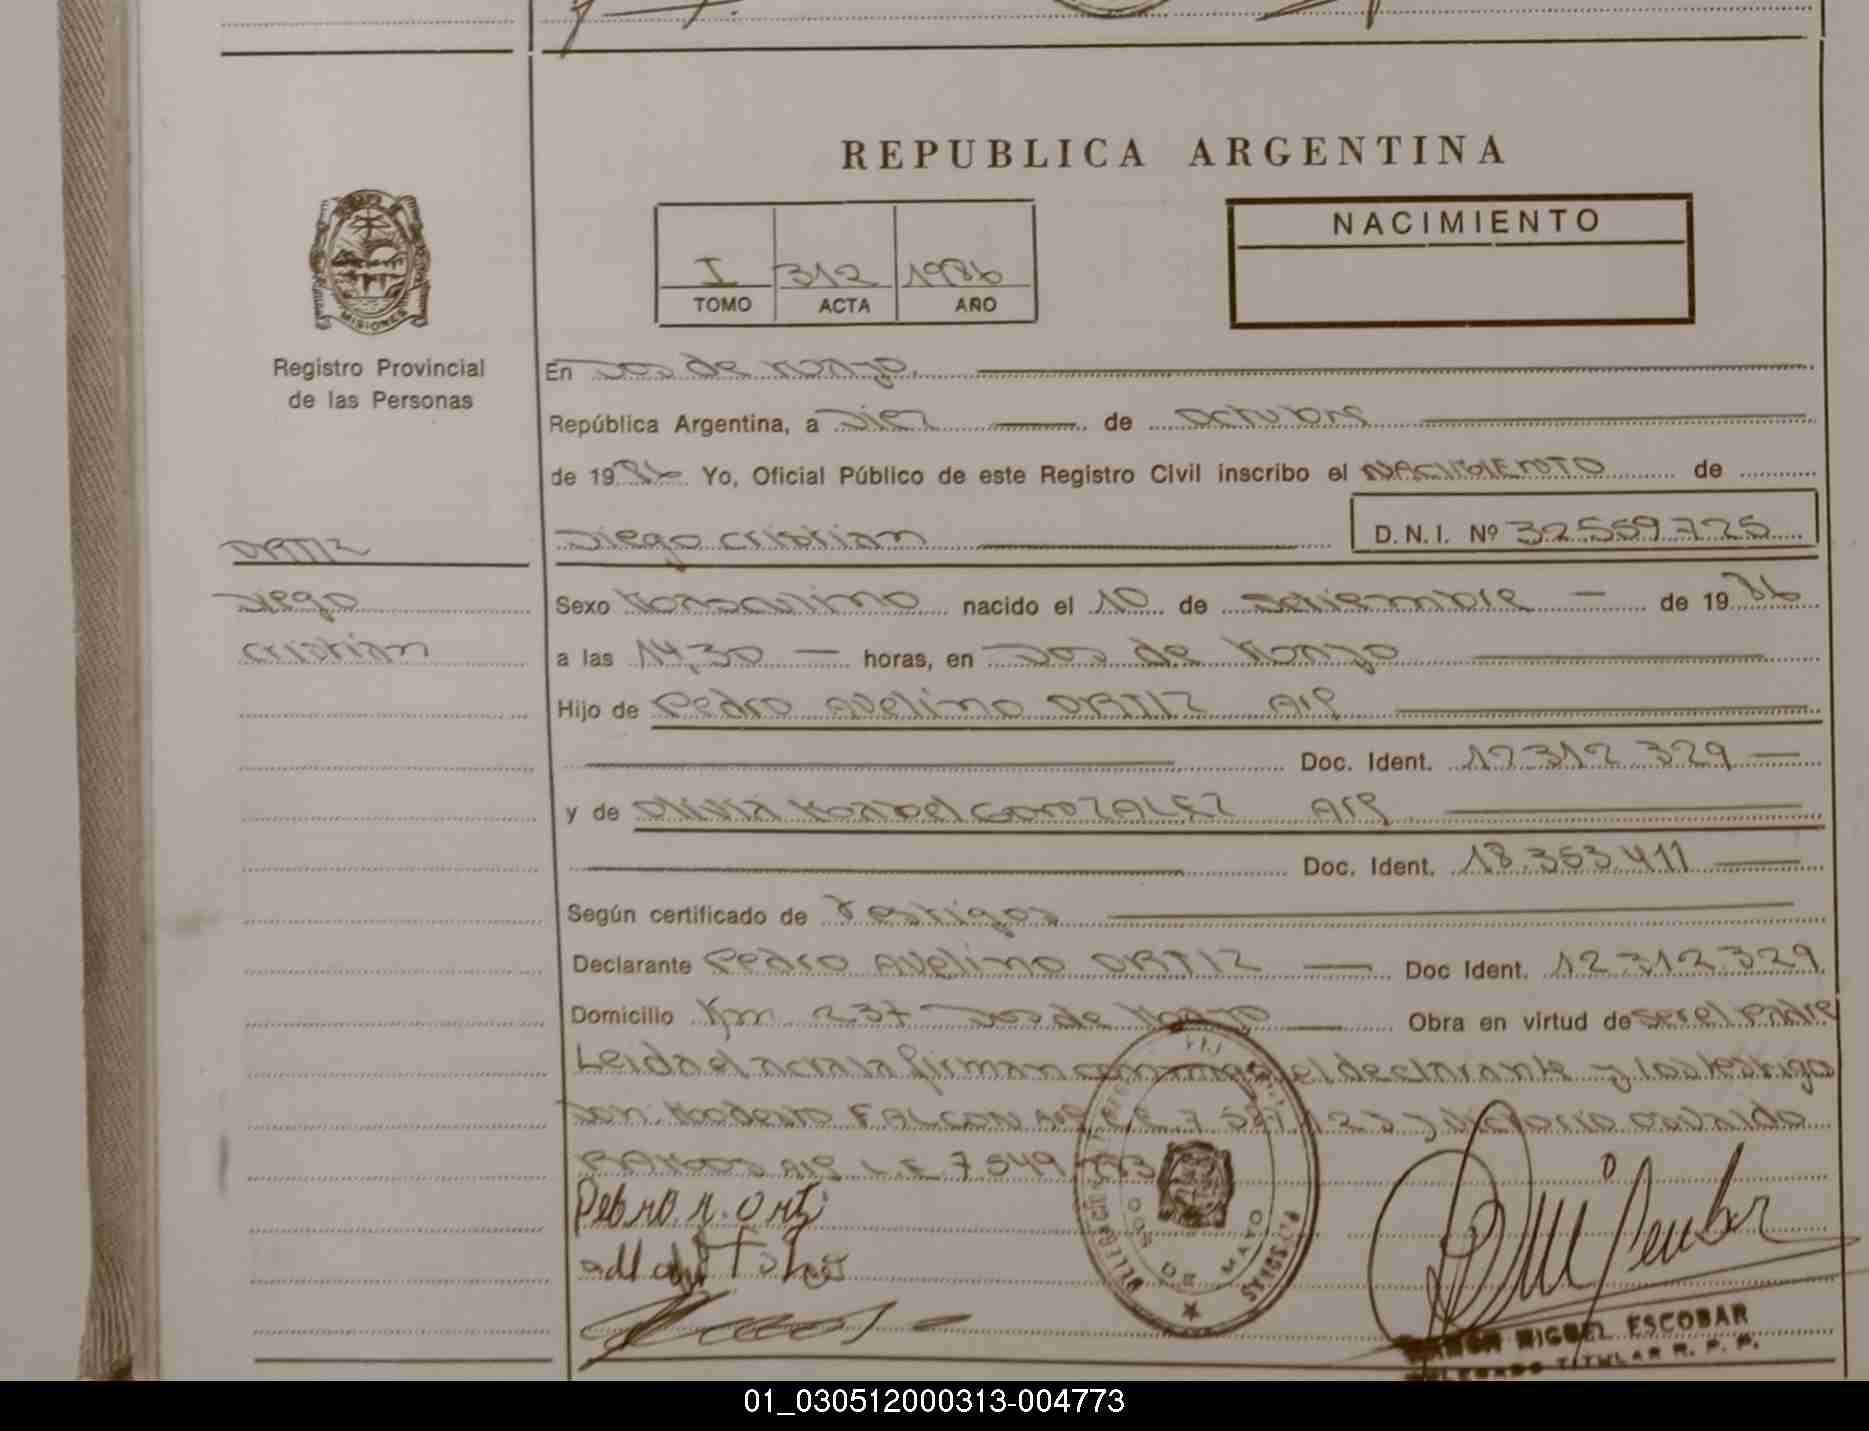 REPUBLICA ARGENTINA
MISIONES
Registro Provincial
de las Personas
I 312 1986
TOMO ACTA AÑO
NACIMIENTO
En Dos de Mayo
República Argentina, a Diez de octubre
de 1986 Yo, Oficial Público de este Registro Civil inscribo el NACIMIENTO de
ORTIZ
Diego
Cristian
Diego Cristian D.N.I. Nº 32.559.725
Sexo Masculino nacido el 10 de Septiembre de 1986
a las 14,30 horas, en Dos de Mayo
Hijo de Pedro Avelino ORTIZ Arg
Doc. Ident. 12.312.329
y de Olivia Mabel GONZALEZ Arg
Doc. Ident. 18.353.411
Según certificado de testigos
Declarante Pedro Avelino ORTIZ Doc Ident. 12.312.329
Domicilio Km 237 Dos de Mayo Obra en virtud de ser el padre
Leida el acta la firman con migo el declarante y los testigo
Don: Modesto FALCON Arg L.E. 7 y Victorio Osvaldo
RAMOS Arg L.E 7.549
DOS DE MAYO
MIGUEL ESCOBAR
TITULAR R. P. P.
01_030512000313-004773